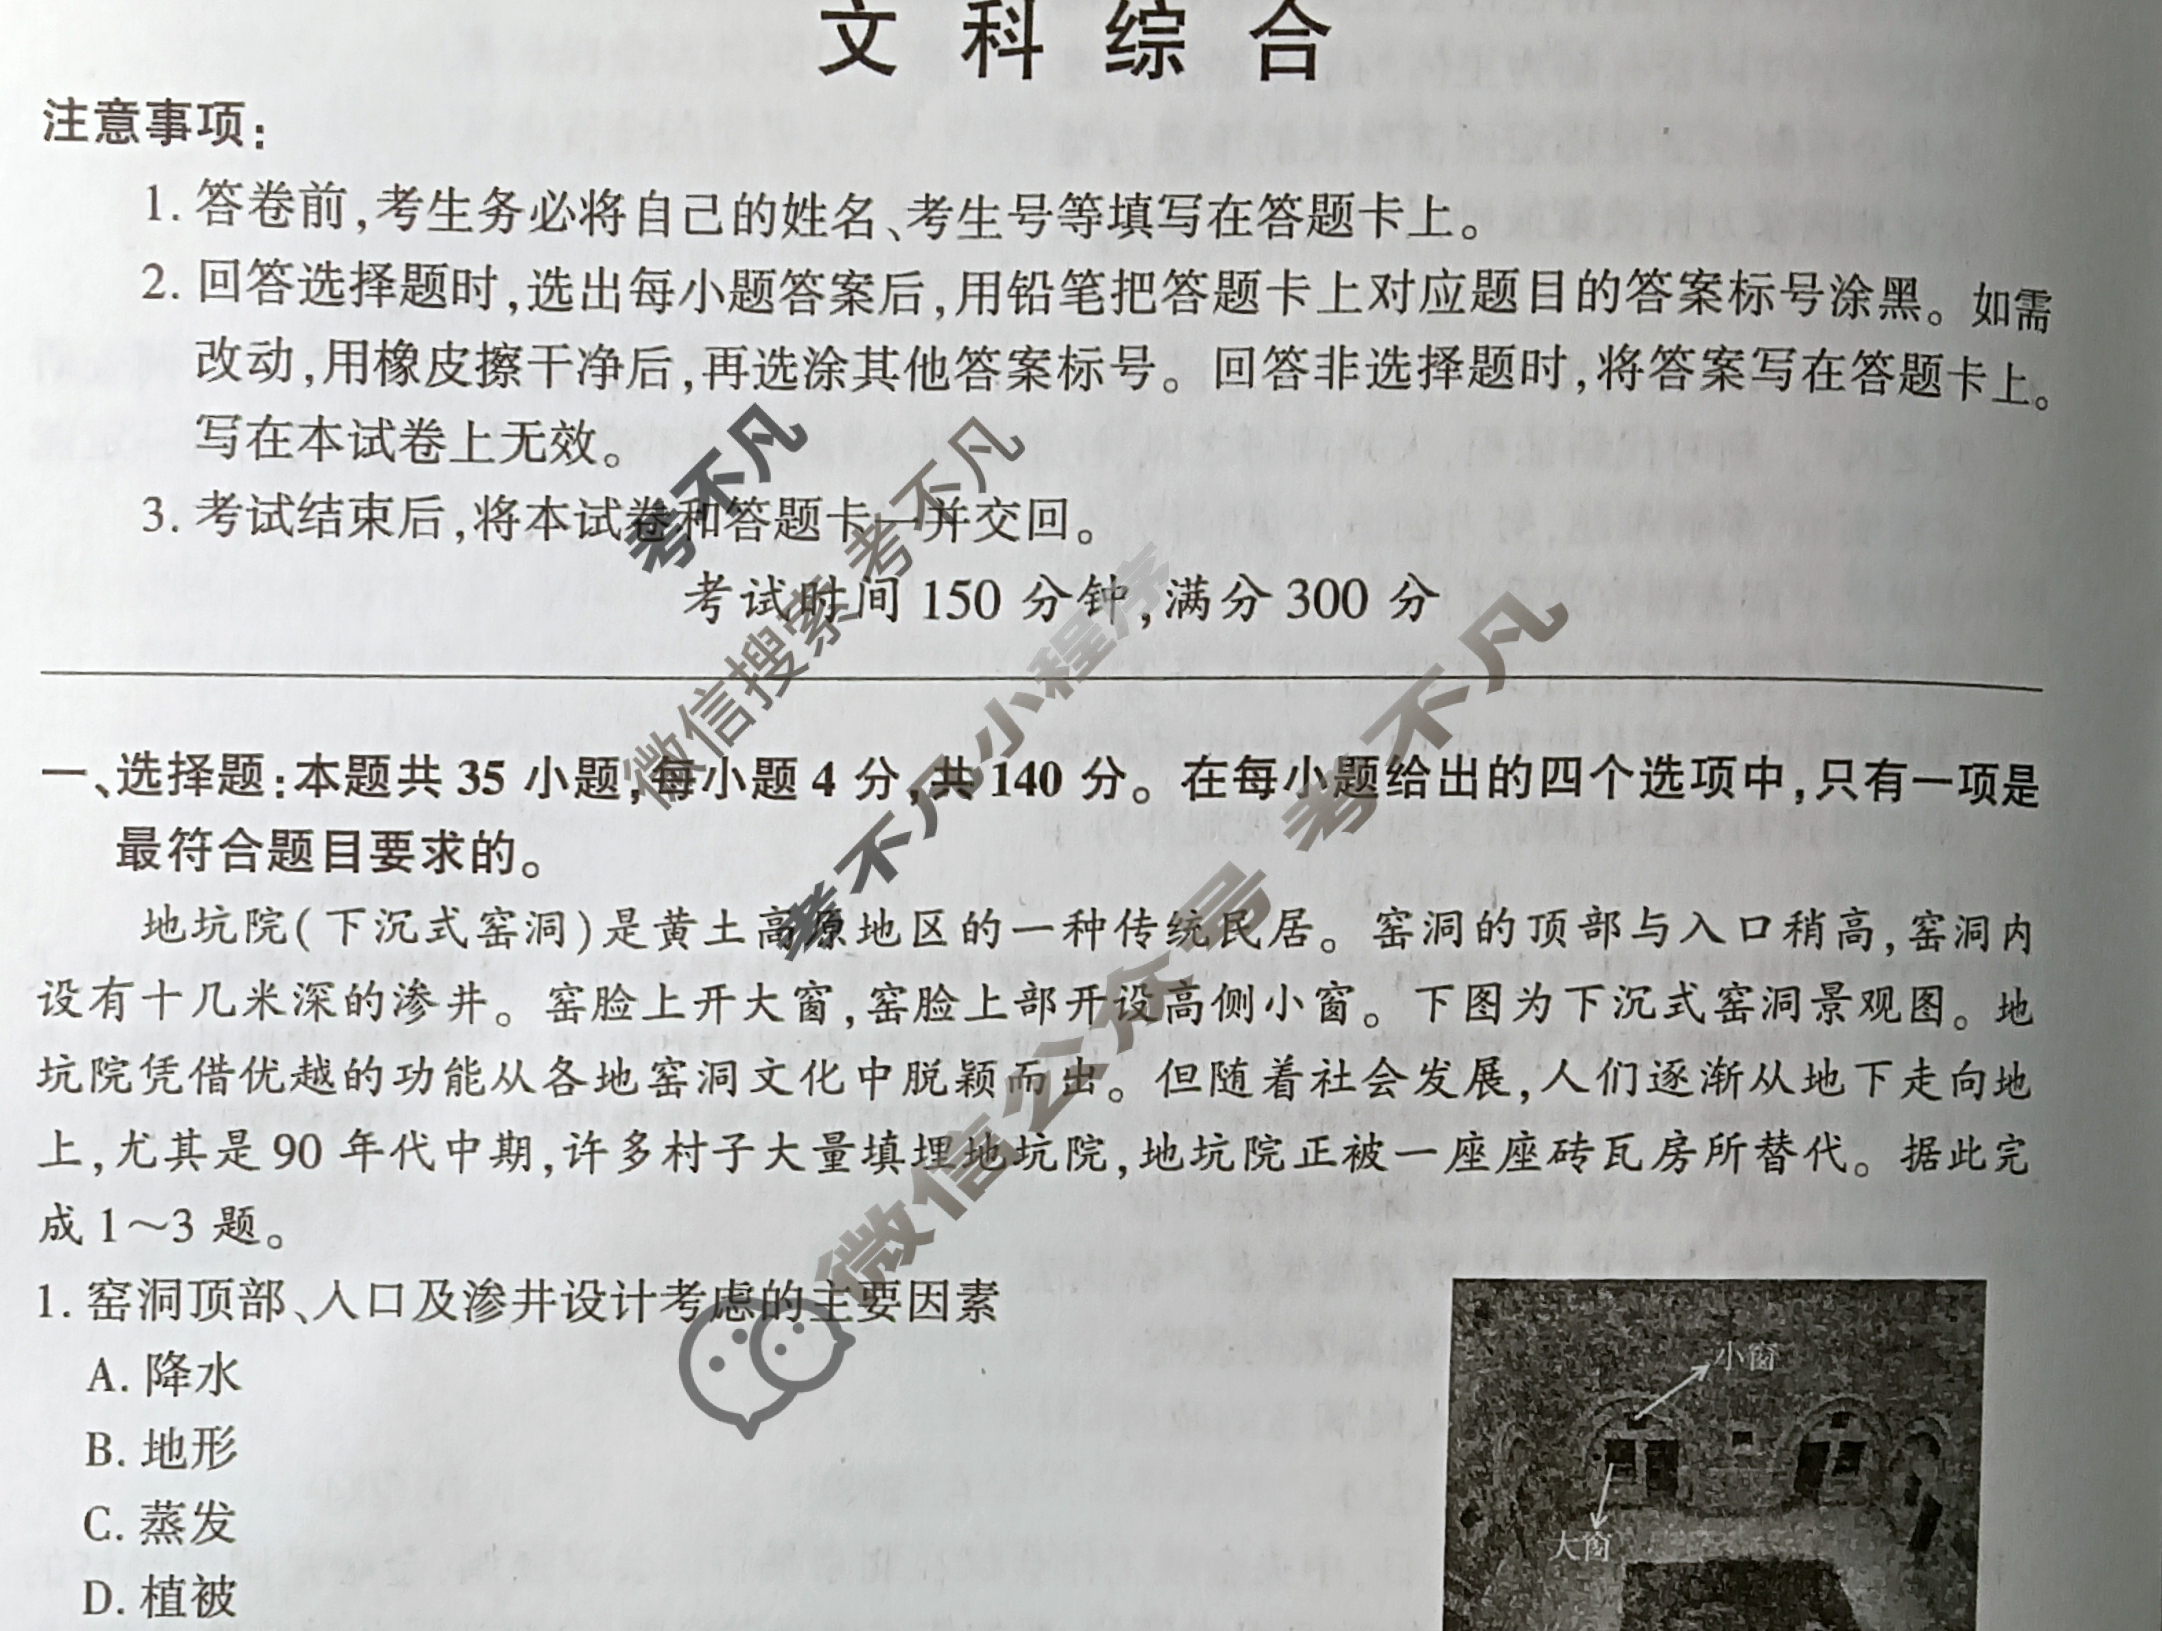 文科综合
注意事项：
1. 答卷前,考生务必将自己的姓名、考生号等填写在答题卡上。
2. 回答选择题时,选出每小题答案后,用铅笔把答题卡上对应题目的答案标号涂黑。如需
改动,用橡皮擦干净后,再选涂其他答案标号。回答非选择题时,将答案写在答题卡上。
写在本试卷上无效。
3. 考试结束后,将本试卷和答题卡一并交回。
考试时间 150 分钟,满分 300 分
考不凡
微信搜索 考不凡
考不凡小程序
微信公众号 考不凡
一、选择题:本题共 35 小题,每小题 4 分,共 140 分。在每小题给出的四个选项中,只有一项是
最符合题目要求的。
地坑院(下沉式窑洞)是黄土高原地区的一种传统民居。窑洞的顶部与入口稍高,窑洞内
设有十几米深的渗井。窑脸上开大窗,窑脸上部开设高侧小窗。下图为下沉式窑洞景观图。地
坑院凭借优越的功能从各地窑洞文化中脱颖而出。但随着社会发展,人们逐渐从地下走向地
上,尤其是 90 年代中期,许多村子大量填埋地坑院,地坑院正被一座座砖瓦房所替代。据此完
成 1～3 题。
1. 窑洞顶部、入口及渗井设计考虑的主要因素
A. 降水
B. 地形
C. 蒸发
D. 植被
小窗
大窗